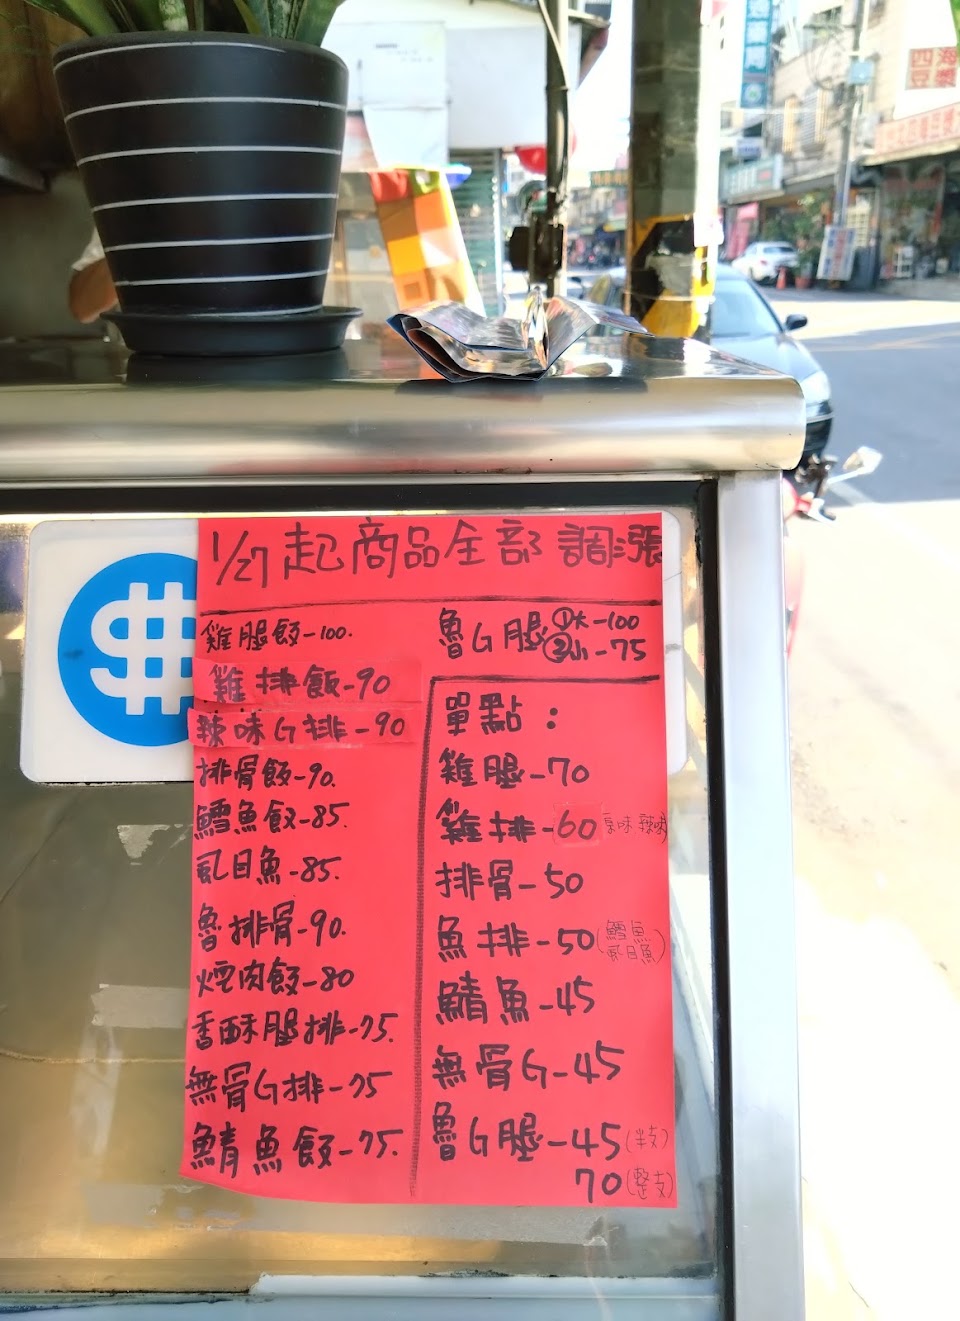 1/27起商品全部調漲
雞腿飯-100.
雞排飯-90
辣味G排-90
排骨飯-90.
鱈魚飯-85.
虱目魚-85.
魯排骨-90.
焢肉飯-80
香酥腿排-75.
無骨G排-75
鯖魚飯-75.
魯G腿①大-100
②小-75
單點：
雞腿-70
雞排-60 原味 辣味
排骨-50
魚排-50(鱈魚
虱目魚)
鯖魚-45
無骨G-45
魯G腿-45(半支)
70(整支)